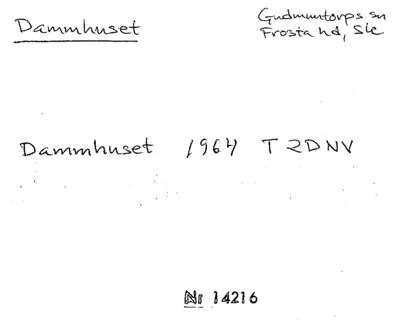 Dammhuset
Gudmuntorps sn
Frosta hd, Ske
Dammhuset 1964 T 2DNV
Nr 14216